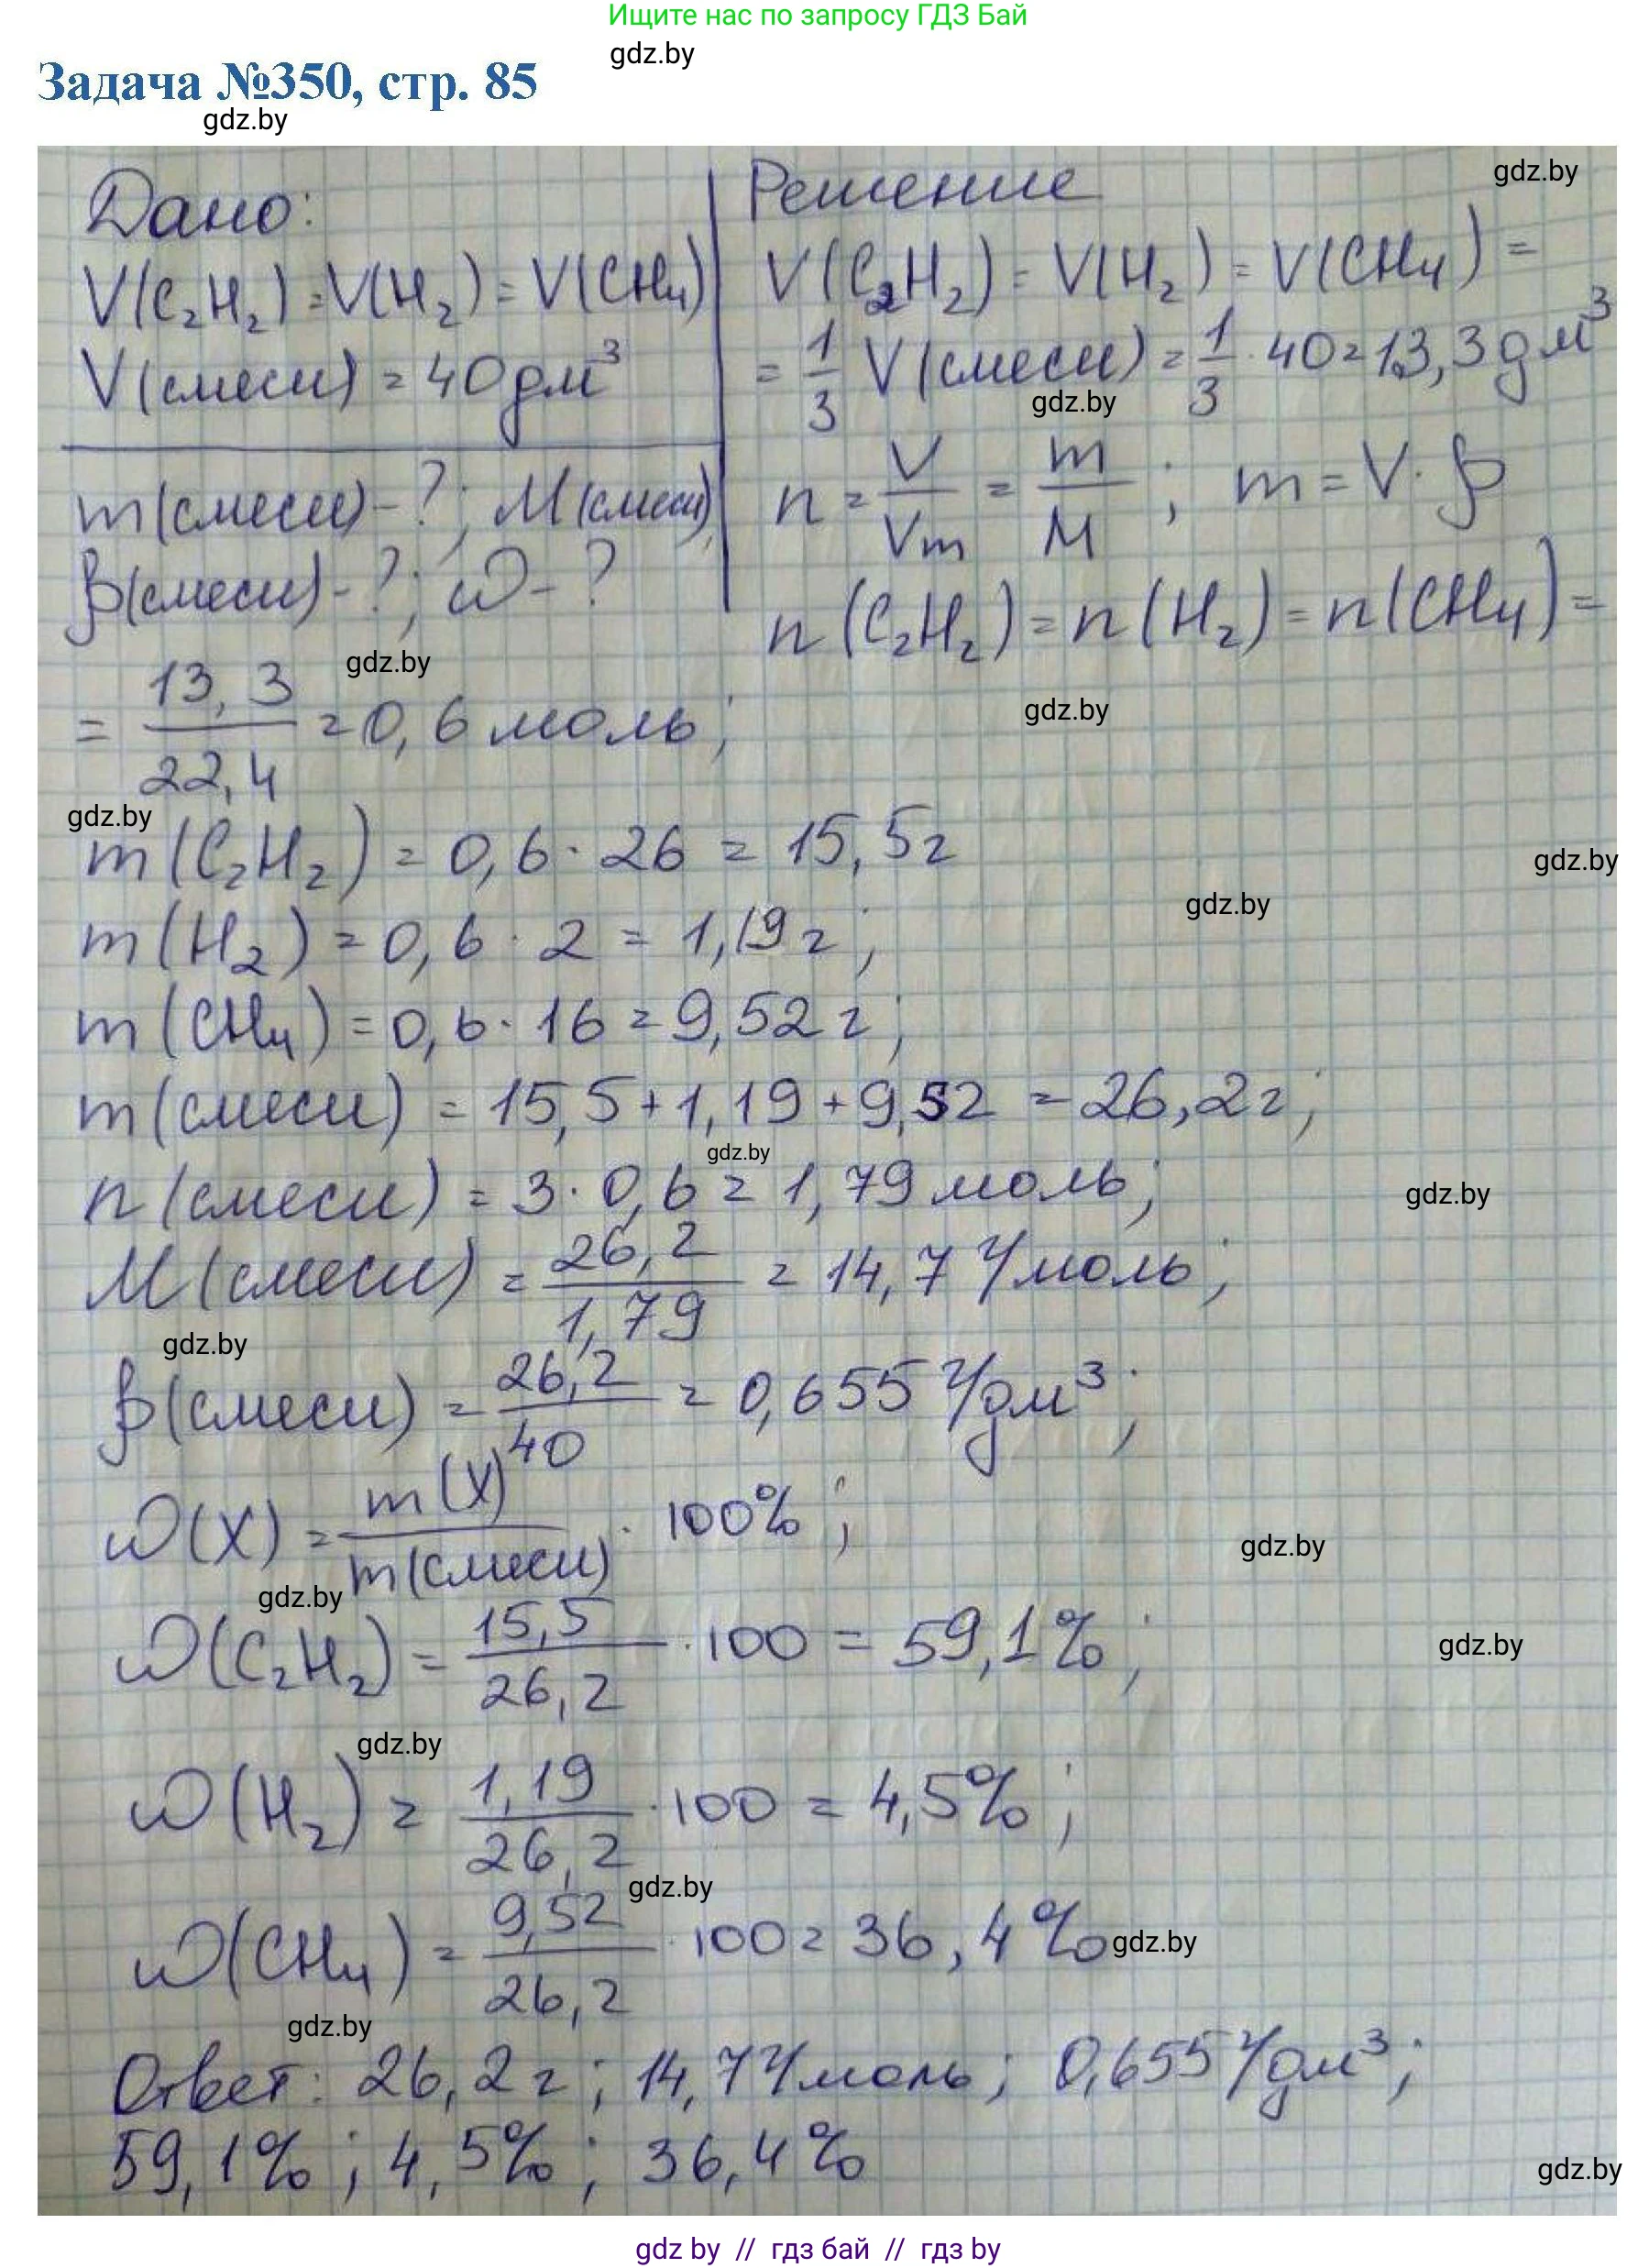 Ищите нас по запросу ГДЗ Бай
gdz.by
Задача №350, стр. 85
gdz.by
gdz.by
Дано:
V(C₂H₂) = V(H₂) = V(CH₄)
V(смеси) = 40 дм³
m(смеси) - ?; M(смеси),
ρ(смеси) - ?; ω - ?
Решение
V(C₂H₂) = V(H₂) = V(CH₄) =
= 1/3 V(смеси) = 1/3 · 40 = 13,3 дм³
gdz.by
n = V/Vm = m/M ; m = V · ρ
n(C₂H₂) = n(H₂) = n(CH₄) =
gdz.by
gdz.by
= 13,3/22,4 = 0,6 моль;
gdz.by
m(C₂H₂) = 0,6 · 26 = 15,5 г
gdz.by
gdz.by
m(H₂) = 0,6 · 2 = 1,19 г;
m(CH₄) = 0,6 · 16 = 9,52 г;
m(смеси) = 15,5 + 1,19 + 9,52 = 26,2 г;
gdz.by
n(смеси) = 3 · 0,6 = 1,79 моль;
gdz.by
M(смеси) = 26,2/1,79 = 14,7 г/моль;
gdz.by
ρ(смеси) = 26,2/40 = 0,655 г/дм³;
ω(X) = m(X)/m(смеси) · 100%;
gdz.by
gdz.by
ω(C₂H₂) = 15,5/26,2 · 100 = 59,1%;
gdz.by
gdz.by
ω(H₂) = 1,19/26,2 · 100 = 4,5%;
gdz.by
ω(CH₄) = 9,52/26,2 · 100 = 36,4%
gdz.by
gdz.by
Ответ: 26,2 г; 14,7 г/моль; 0,655 г/дм³;
59,1%; 4,5%; 36,4%
gdz.by
gdz by // гдз бай // гдз by